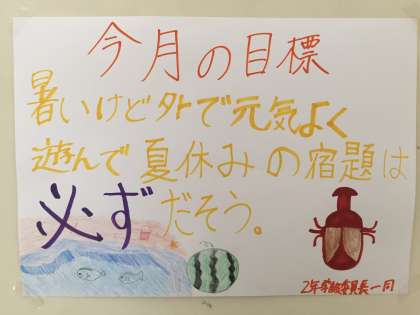 今月の目標
暑いけど外で元気よく
遊んで夏休みの宿題は
必ずだそう。
2年学級委員長一同